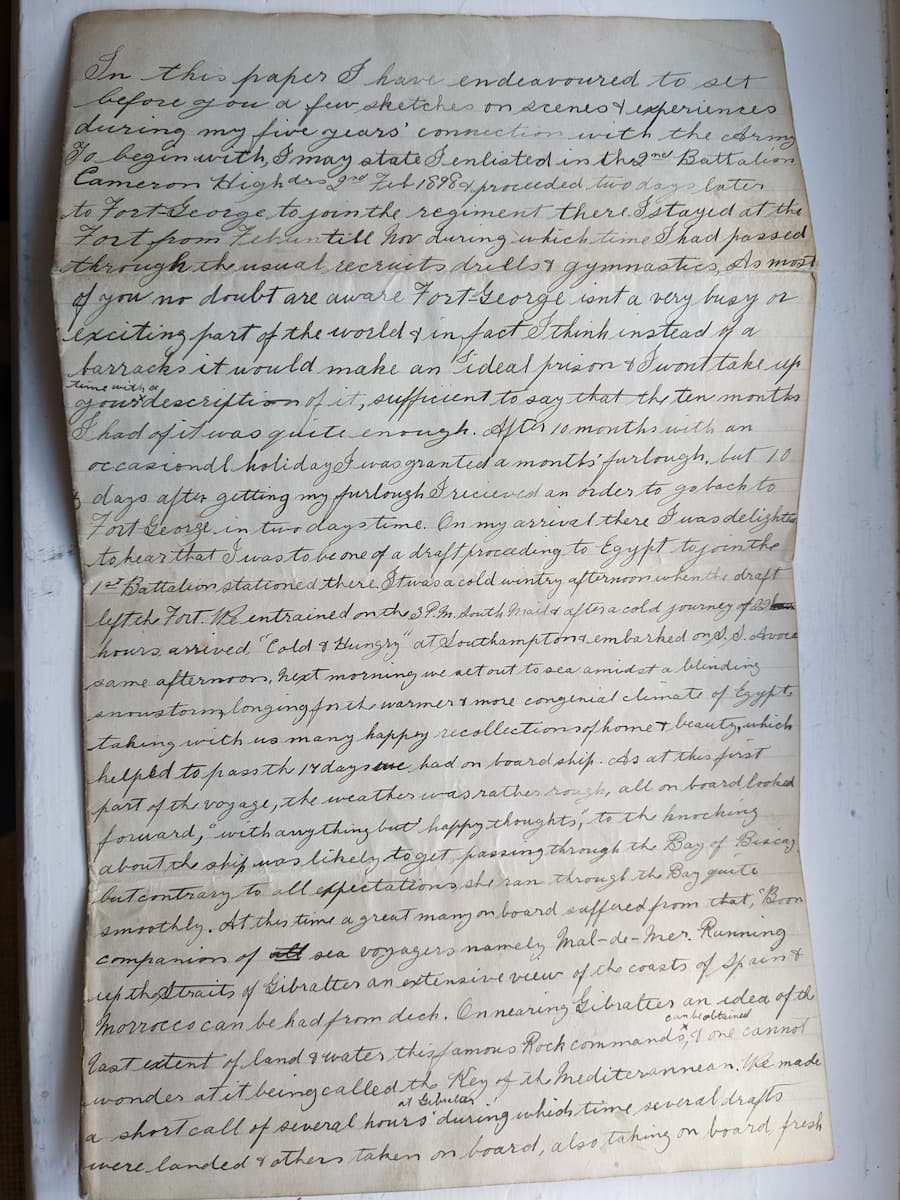 In this paper I have endeavoured to set
before you a few sketches on scenes & experiences
during my five years' connection with the Army
To begin with, I may state I enlisted in the 2nd Battalion
Cameron Highdrs 2nd Feb 1898 & proceeded two days later
to Fort-George to join the regiment there. I stayed at the
Fort from Feb untill Nov during which time I had passed
through the usual recruits drills & gymnastics, As most
of you no doubt are aware Fort-George isnt a very busy or
exciting part of the world & in fact I think instead of a
barracks it would make an ideal prison & I wont take up
time with a
your description of it, sufficient to say that the ten months
I had of it was quite enough. After 10 months with an
occasional holiday I was granted a months' furlough, but 10
days after getting my furlough I recieved an order to go back to
Fort George in two days time. On my arrival there I was delighted
to hear that I was to be one of a draft proceeding to Egypt to join the
1st Battalion stationed there. It was a cold wintry afternoon when the draft
left the Fort. We entrained on the 3 P.M. South Mail & after a cold journey of 22
hours arrived "Cold & Hungry" at Southampton & embarked on S.S. Avoca
same afternoon. Next morning we set out to sea amidst a blinding
snowstorm, longing for the warmer & more congenial climate of Egypt,
taking with us many happy recollections of home & beauty, which
helped to pass the 14 days we had on board ship. As at this first
part of the voyage, the weather was rather rough, all on board looked
forward, "with anything but happy thoughts", to the knocking
about the ship was likely to get, passing through the Bay of Biscay
but contrary to all expectations she ran through the Bay quite
smoothly. At this time a great many on board suffered from that, "Boon
companion of all sea voyagers namely Mal-de-Mer. Running
up the Straits of Gibralter an extensive view of the coasts of Spain &
Morrocco can be had from deck. On nearing Gibralter an idea of the
can be obtained
vast extent of land & water, this famous Rock commands, & one cannot
wonder at it being called the Key of the Mediterannean. We made
at Gibralter
a short call of several hours during which time several drafts
were landed & others taken on board, also taking on board fresh